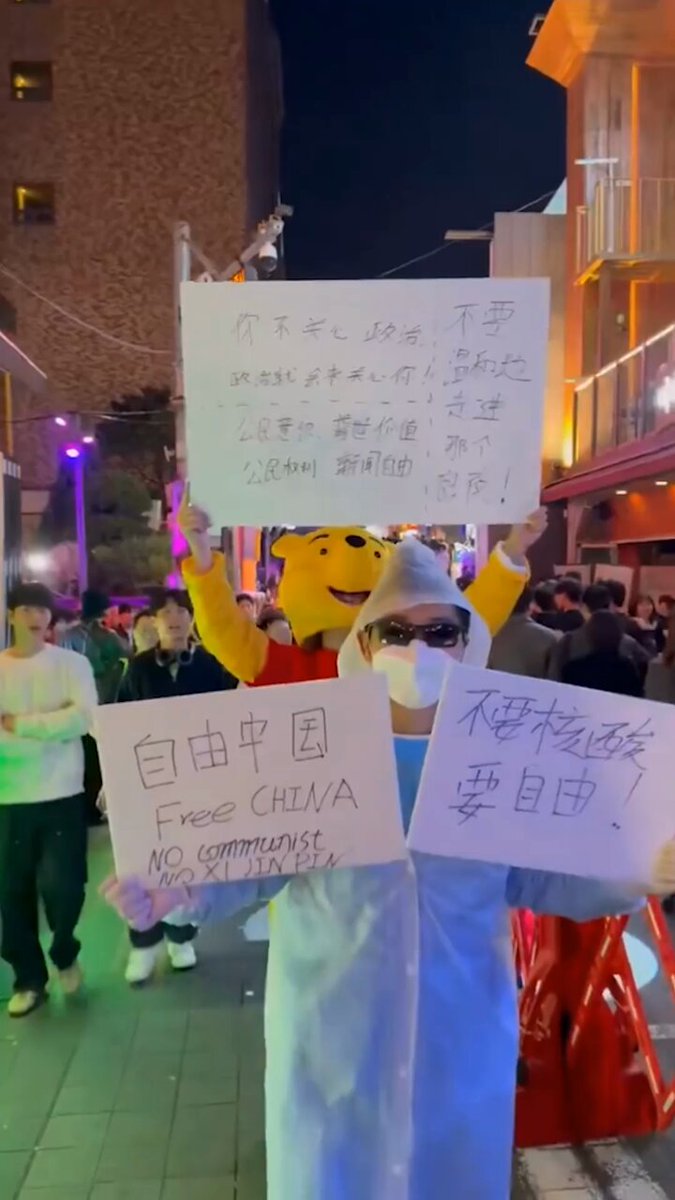 你不关心政治,
政治就会来关心你!
公民意识 普世价值
公民权利 新闻自由
不要
温和地
走进
那个
良夜!
自由中国
Free CHINA
NO communist
NO XI JIN PIN
不要核酸
要自由!